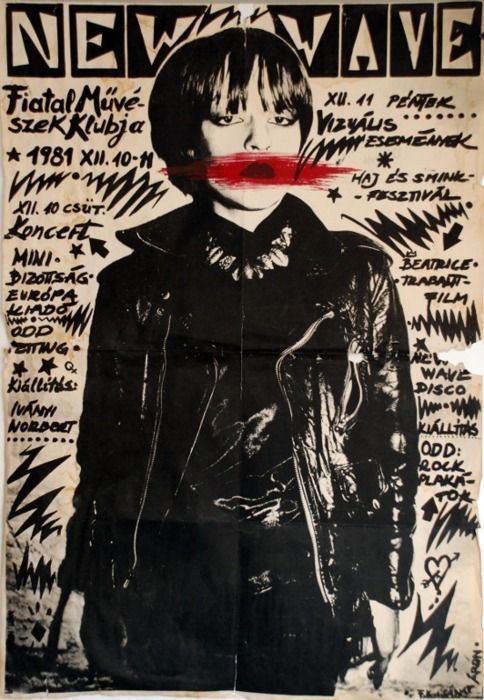 NEW WAVE
Fiatal Művé-
szek Klubja
1981 XII. 10-11
XII. 10 CSÜT.
Koncert
MINI
BIZOTTSÁG
EURÓPA
KIADÓ
ODD
Kiállítás:
IVÁNYI
NORBERT
XII. 11 PÉNTEK
VIZUÁLIS
ESEMÉNYEK
HAJ ÉS SMINK-
FESZTIVÁL
BEATRICE-
TRABANT-
FILM
NEW
WAVE
DISCO
KIÁLLÍTÁS
ODD:
ROCK
PLAKÁ-
TOK
ÁRON